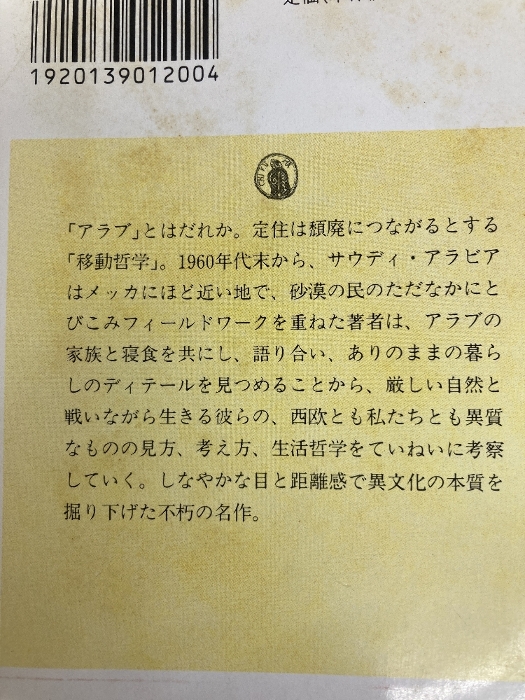 1920139012004
「アラブ」とはだれか。定住は頽廃につながるとする
「移動哲学」。1960年代末から、サウディ・アラビア
はメッカにほど近い地で、砂漠の民のただなかにと
びこみフィールドワークを重ねた著者は、アラブの
家族と寝食を共にし、語り合い、ありのままの暮ら
しのディテールを見つめることから、厳しい自然と
戦いながら生きる彼らの、西欧とも私たちとも異質
なものの見方、考え方、生活哲学をていねいに考察
していく。しなやかな目と距離感で異文化の本質を
掘り下げた不朽の名作。